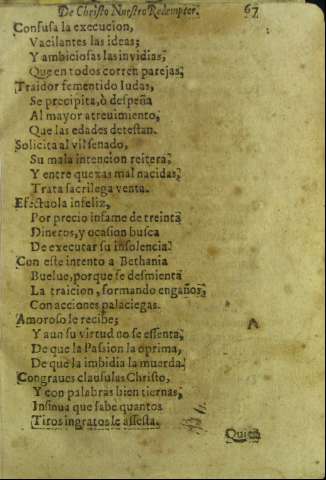 De Christo Nuestro Redemptor. 67
Confusa la execucion,
Vacilantes las ideas;
Y ambiciosas las invidias,
Que en todos corren parejas;
Traidor fementido Iudas,
Se precipita, ò despeña
Al mayor atreuimiento,
Que las edades detestan.
Solicita al vil senado,
Su mala intencion reitera;
Y entre quexas mal nacidas,
Trata sacrilega venta.
Efectuola infeliz,
Por precio infame de treinta
Dineros, y ocasion busca
De executar su insolencia.
Con este intento a Bethania
Buelue, porque se desmienta
La traicion, formando engaños,
Con acciones palaciegas.
Amoroso le recibe;
Y aun su virtud no se essenta,
De que la Passion la oprima,
De que la imbidia la muerda.
Con graues clausulas Christo,
Y con palabras bien tiernas,
Insinua que sabe quantos
Tiros ingratos le assesta.
Quien